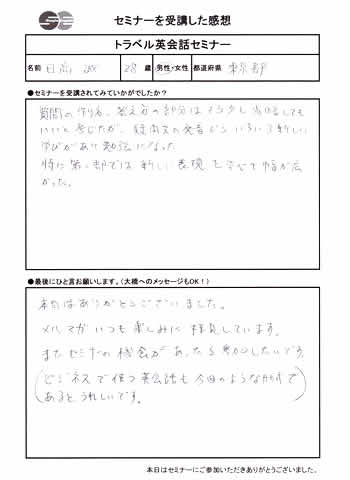 セミナーを受講した感想
トラベル英会話セミナー
名前 日高 28 歳 男性・女性 都道府県 東京都
●セミナーを受講されてみていかがでしたか？
質問の作り方、答え方の部分はもう少し
いいと感じたが、発音からいろいろ新しい
学びがあり勉強になった。
特に第二部では新しい表現を学べて幅が広
がった。
●最後にひと言お願いします。（大橋へのメッセージもOK！）
本日はありがとうございました。
メルマガいつも楽しみに拝見しています。
またセミナーの機会があったら参加したいです。
（ビジネスで使う英会話も今回のような形式で
あるとうれしいです。）
本日はセミナーにご参加いただきありがとうございました。